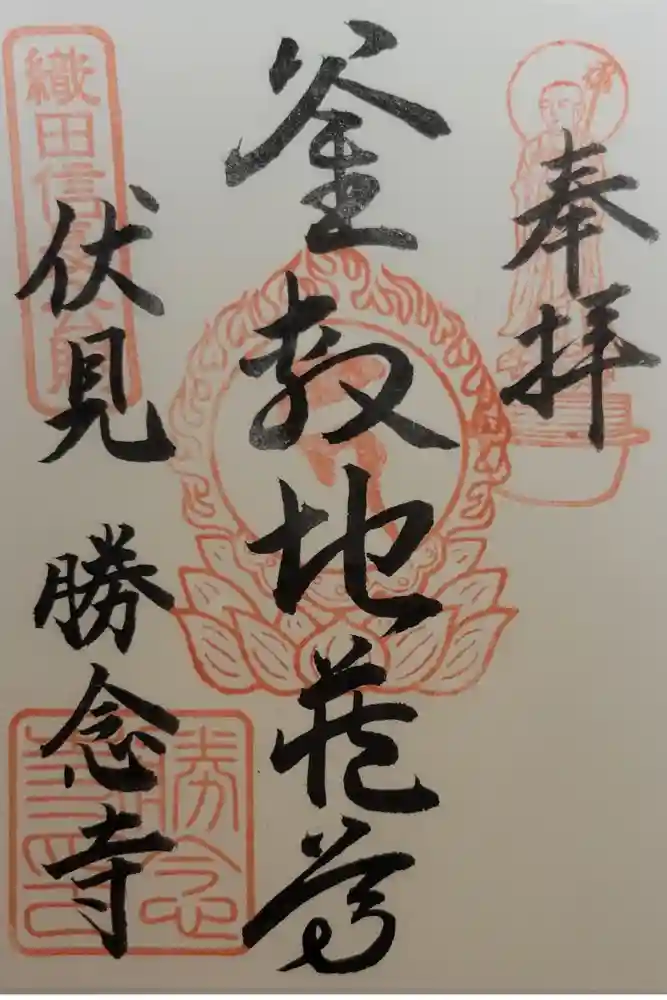 奉拝
釜敬地蔵尊
伏見 勝念寺
織田信長公
勝念